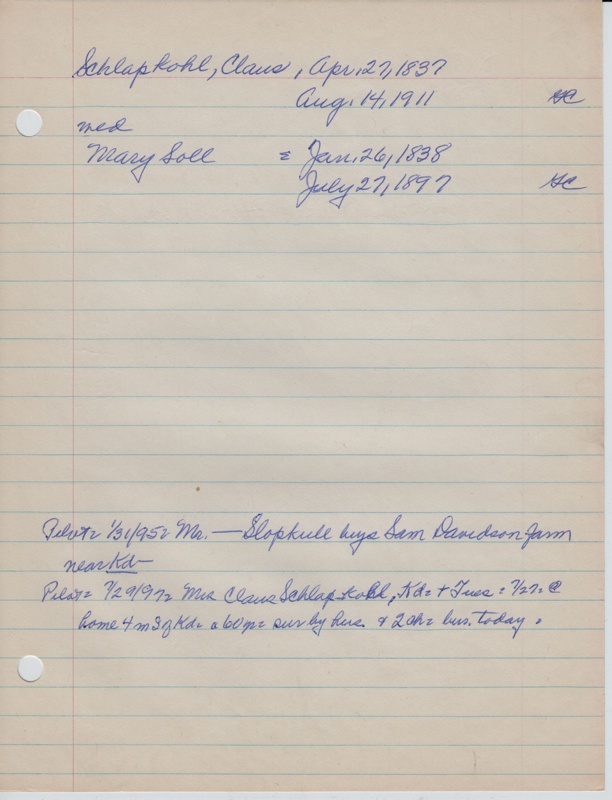 Schlapkohl, Claus, Apr. 27, 1837
Aug. 14, 1911 GC
med
Mary Soll = Jan. 26, 1838
July 27, 1897 GC
Pilot= 1/31/95= Mr. — Slopkull buys Sam Davidson farm
near Kd-
Pilot= 7/29/97= Mrs Claus Schlapkohl, Kd= + Tues = 7/27= @
home 4 m S of Kd= a 60 p= sur by hus. & 2 ch= bur. today.